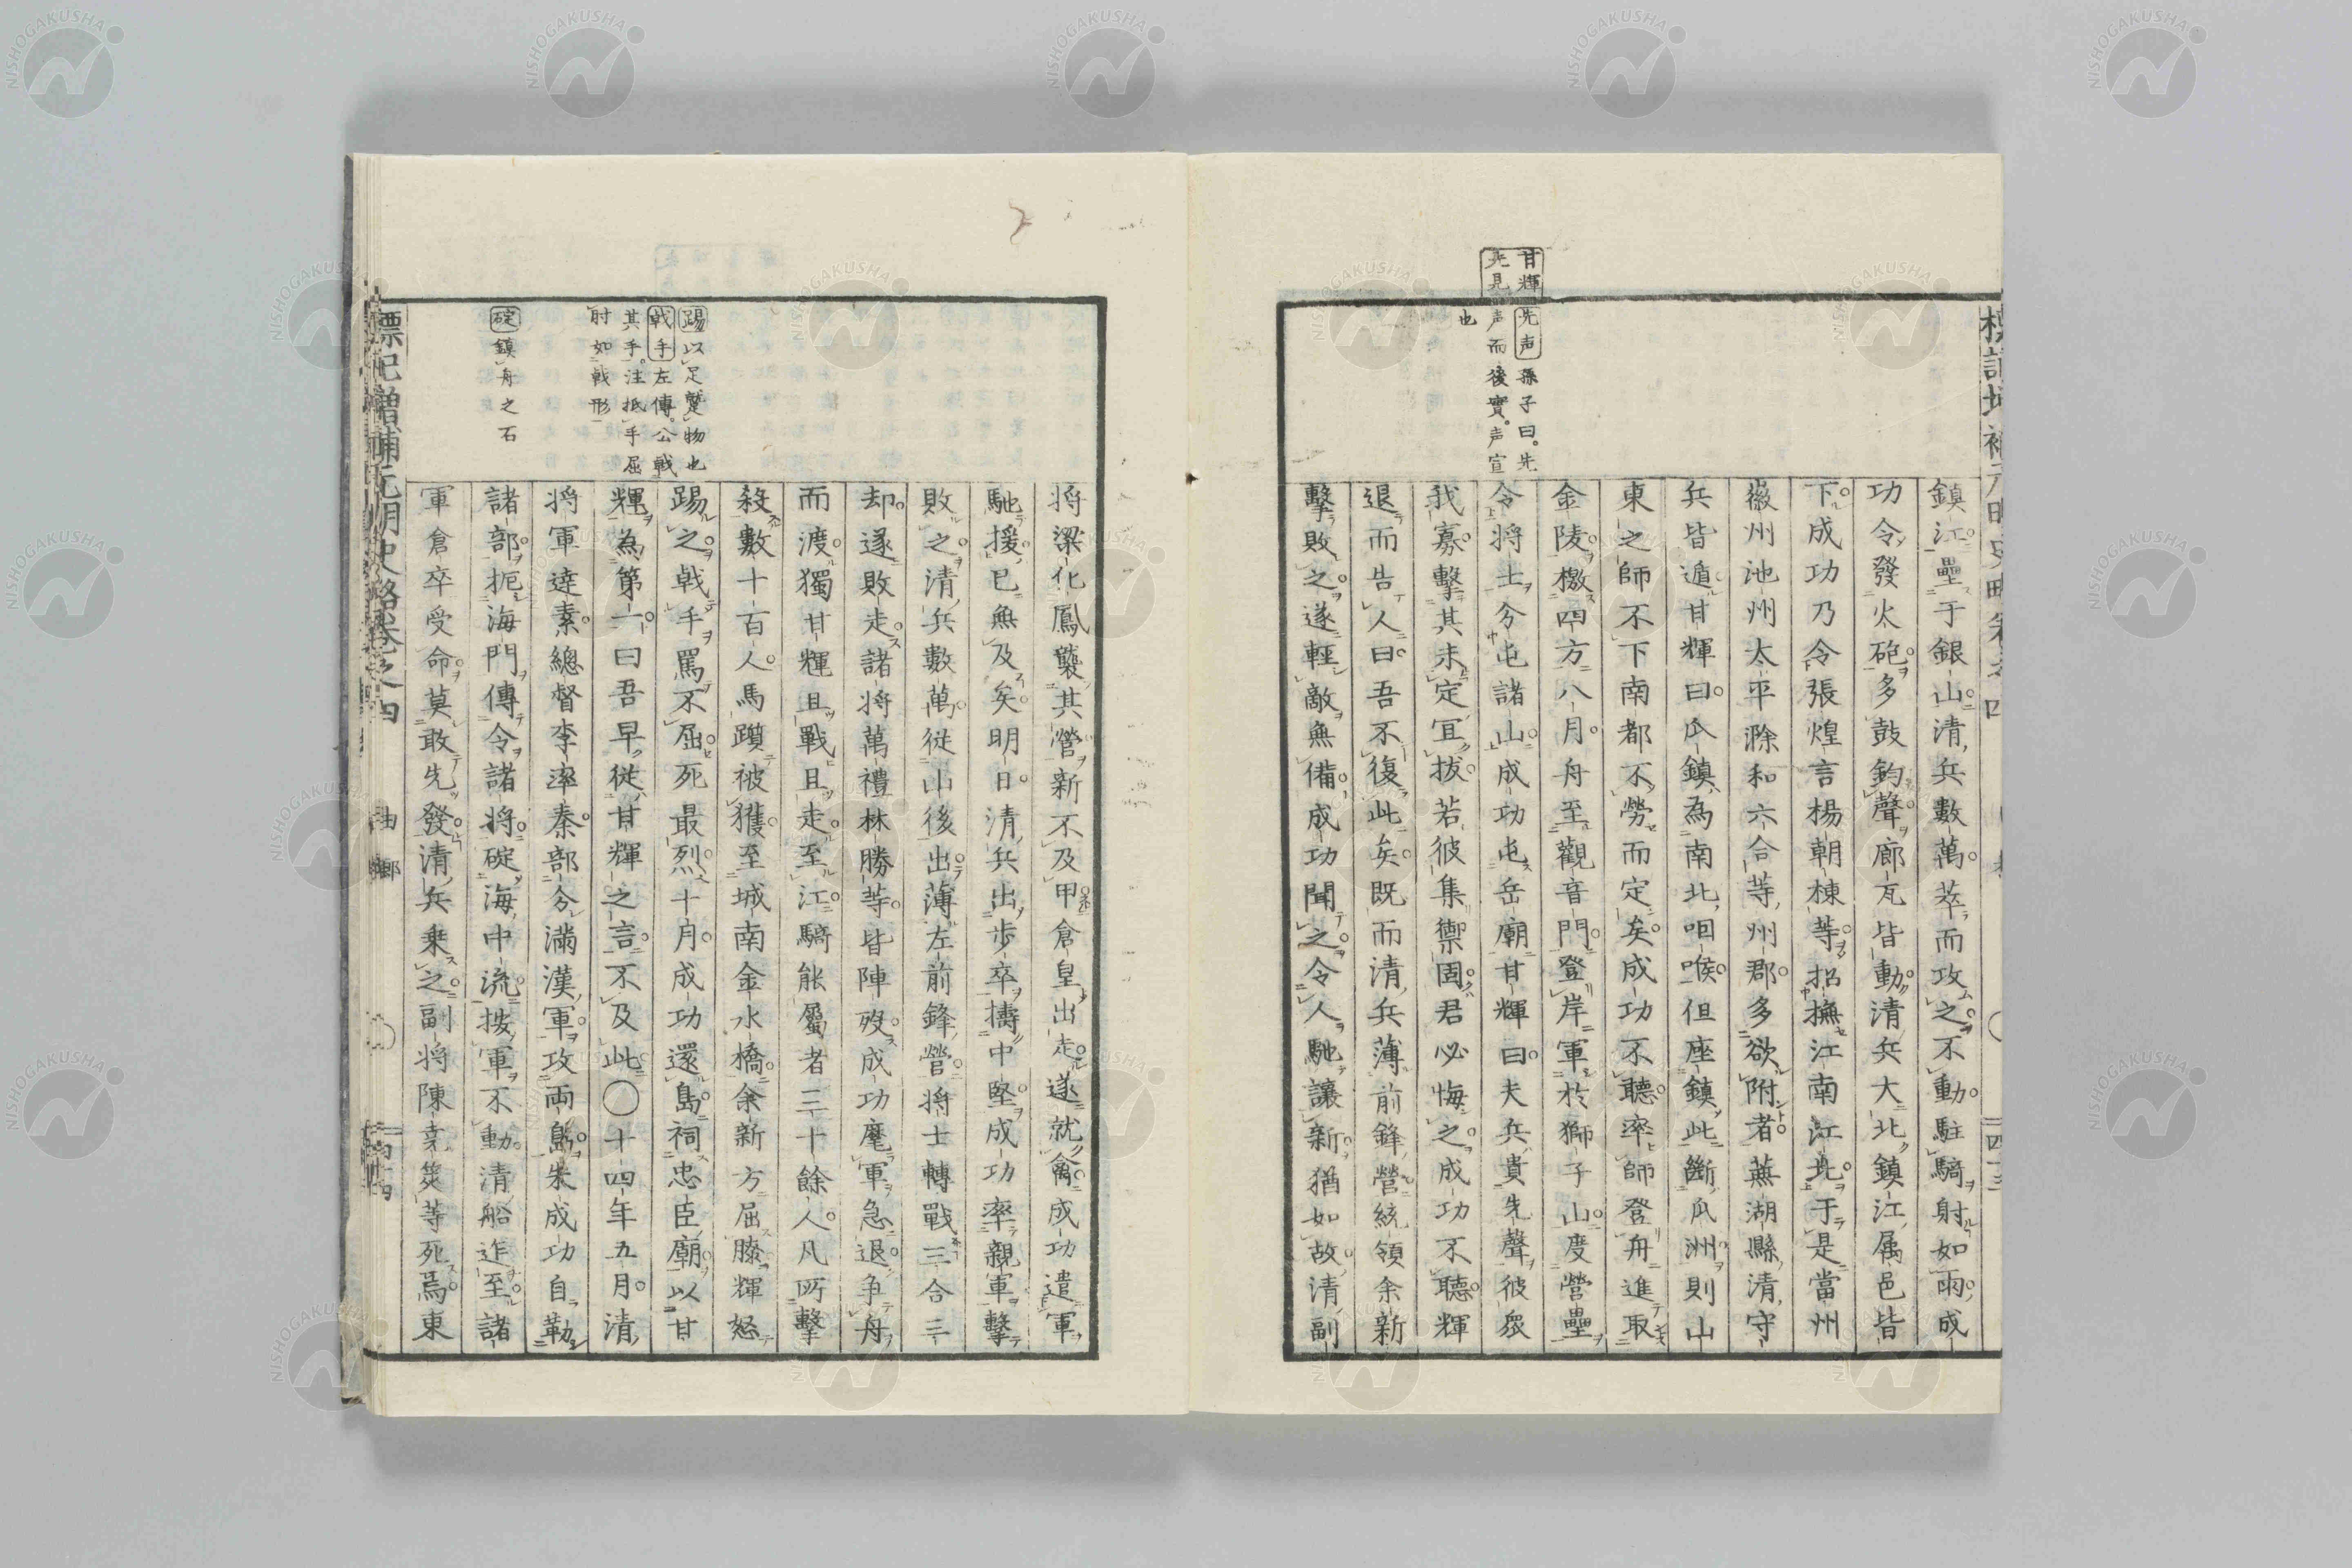 鎮江壘于銀山清兵數萬萃而攻之不動駐騎射如雨成
功令發火砲多鼓鈞聲廊瓦皆動清兵大北鎮江属邑皆
下成功乃令張煌言楊朝棟等招撫江南江北于是當州
徽州池州太平滁和六合等州郡多欲附者蕪湖縣清守
兵皆遁甘輝曰瓜鎮為南北咽喉但座鎮此斷瓜洲則山
東之師不下南都不勞而定矣成功不聽率師登舟進取
金陵檄四方八月舟至觀音門登岸軍於獅子山度營壘
令将士分屯諸山成功屯岳廟甘輝曰夫兵貴先聲彼衆
我寡擊其未定冝拔若彼集禦固君必悔之成功不聽輝
退而告人曰吾不復此矣既而清兵薄前鋒營統領余新
擊敗之遂輕敵無備成功聞之令人馳讓新猶如故清副
甘輝
先見
先声孫子曰先
声而後實声宣
也
将梁化鳳襲其營新不及甲倉皇出走遂就禽成功遣軍
馳援已無及矣明日清兵出歩卒擣中堅成功率親軍擊
敗之清兵數萬從山後出薄左前鋒營将士轉戰三合三
却遂敗走諸将萬禮林勝等皆陣歿成功麾軍急退争舟
而渡獨甘輝且戰且走至江騎能屬者三十餘人凡所擊
殺數十百人馬躓被獲至城南金水橋余新方屈膝輝怒
踢之戟手罵不屈死最烈十月成功還島祠忠臣廟以甘
輝為第一曰吾早從甘輝之言不及此〇十四年五月清
将軍達素總督李率泰部分滿漢軍攻両島朱成功自勒
諸部扼海門傳令諸将碇海中流按軍不動清船迮至諸
軍倉卒受命莫敢先發清兵乗之副将陳堯筴等死焉東
踢以足蹵物也
戟手左傳公戟
其手注抵手屈
肘如戟形
碇鎮舟之石
標記増補元明史略巻之四